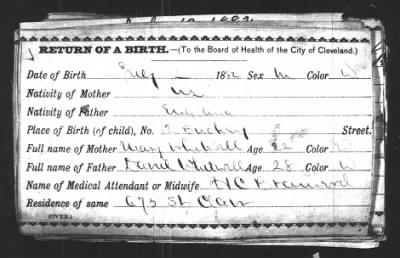 RETURN OF A BIRTH.—(To the Board of Health of the City of Cleveland.)
Date of Birth July 1882 Sex M Color W
Nativity of Mother
Nativity of Father England
Place of Birth (of child), No. Street.
Full name of Mother Mary Whitwell Age 22 Color W
Full name of Father Daniel Whitwell Age 28 Color W
Name of Medical Attendant or Midwife H C
Residence of same 675 St Clair
(OVER.)